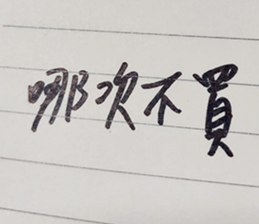 哪次不買